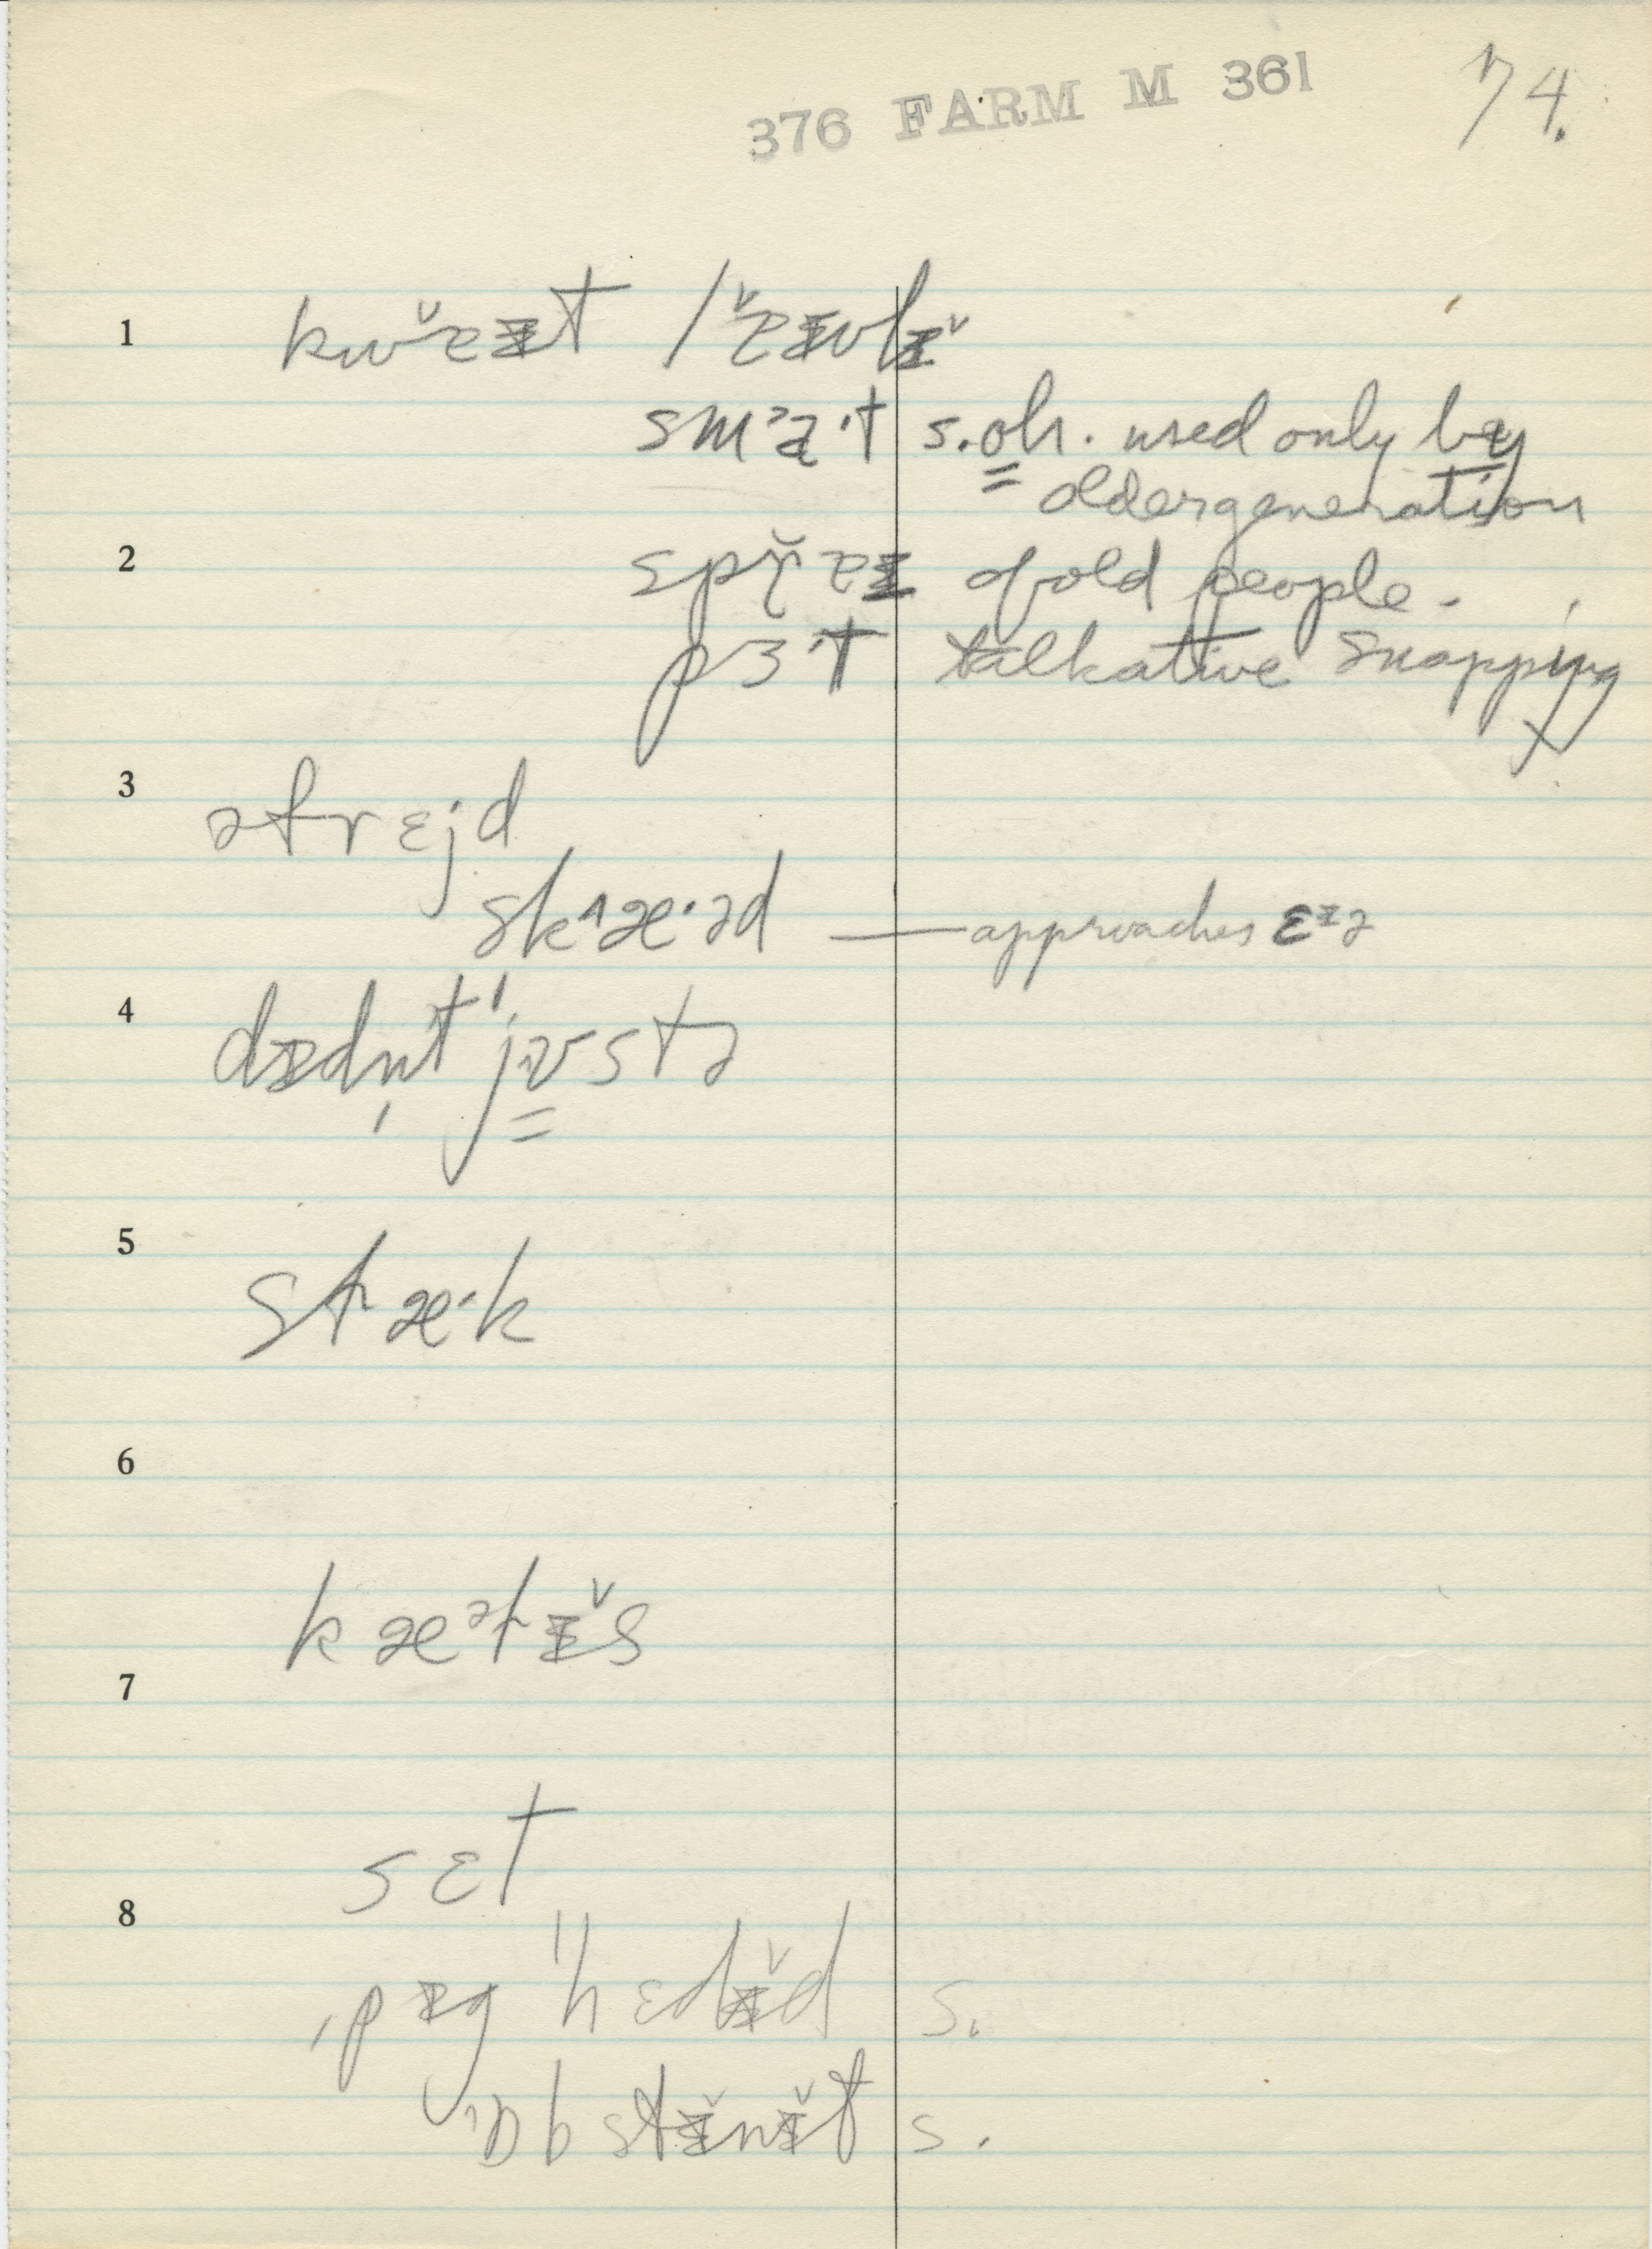 376 FARM M 361 74.
1 kwɐ̆ɪt / lɐ̆ɪvlɪ̆
smᵊa·t s. oh. used only by
older generation
2 sprɐɪ of old people.
pɜ·t talkative snapping
3 əfrɛjd
sk¹æ·əd — approaches ɛᶦə
4 dɪdn̩t ˈjʊstə
5 stæ·k
6
kæᵊtɪ̆s
7
sɛt
8
ˌpɪg ˈhɛdɪ̆d s.
ˈɒbstɪ̆nɪ̆t s.